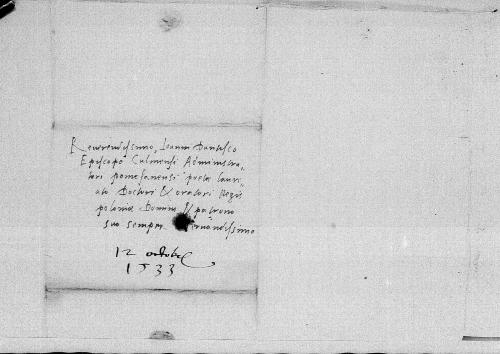 Reverendissimo, Ioanni Dantisco
Episcopo Culmensi Administra,
tori pomesanensi poetæ lauri,
ato Doctori & oratori Regis
poloniæ Domino & patrono
suo semper
12 octobr
1533